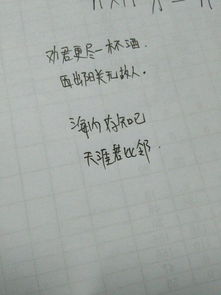 劝君更尽一杯酒.
西出阳关无故人.
海内存知己
天涯若比邻.